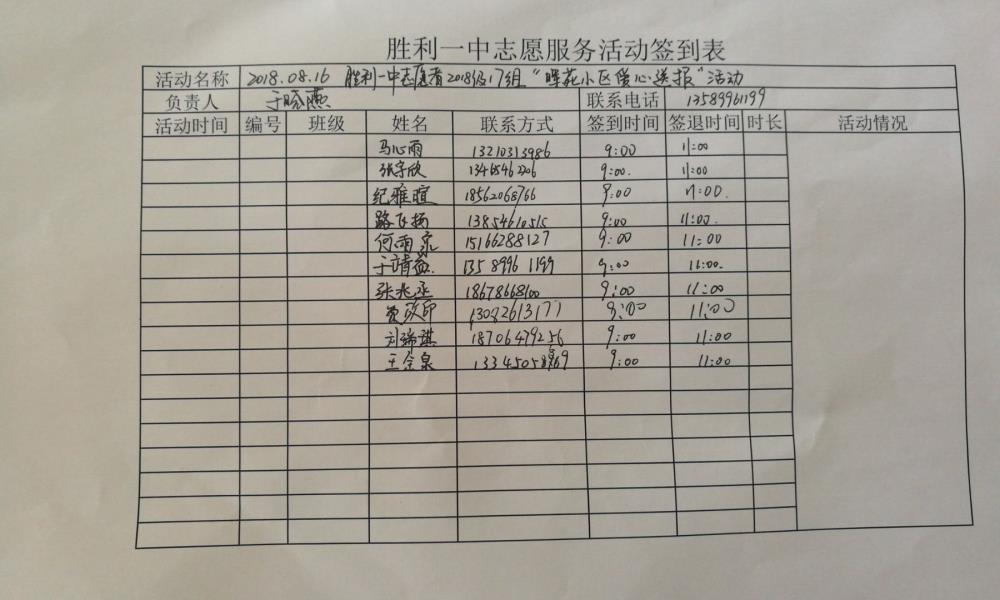 胜利一中志愿服务活动签到表
活动名称 2018.08.16 胜利一中志愿者2018级17组“晖苑小区爱心送报”活动
负责人 于晓燕 联系电话 13589961199
活动时间 编号 班级 姓名 联系方式 签到时间 签退时间 时长 活动情况
马心雨 13210313986 9:00 11:00
张宇欣 9:00. 11:00
纪雅暄 18562068766 9:00 11:00.
路飞扬 13854610515 9:00 11:00.
何雨泉 15166288127 9:00 11:00
于靖益. 13589961199 9:00 11:00.
张兆丞 18678668100 9:00 11:00
13082613177 9:00 11:00
刘瑞琪 18706479256 9:00 11:00
王金泉 9:00 11:00